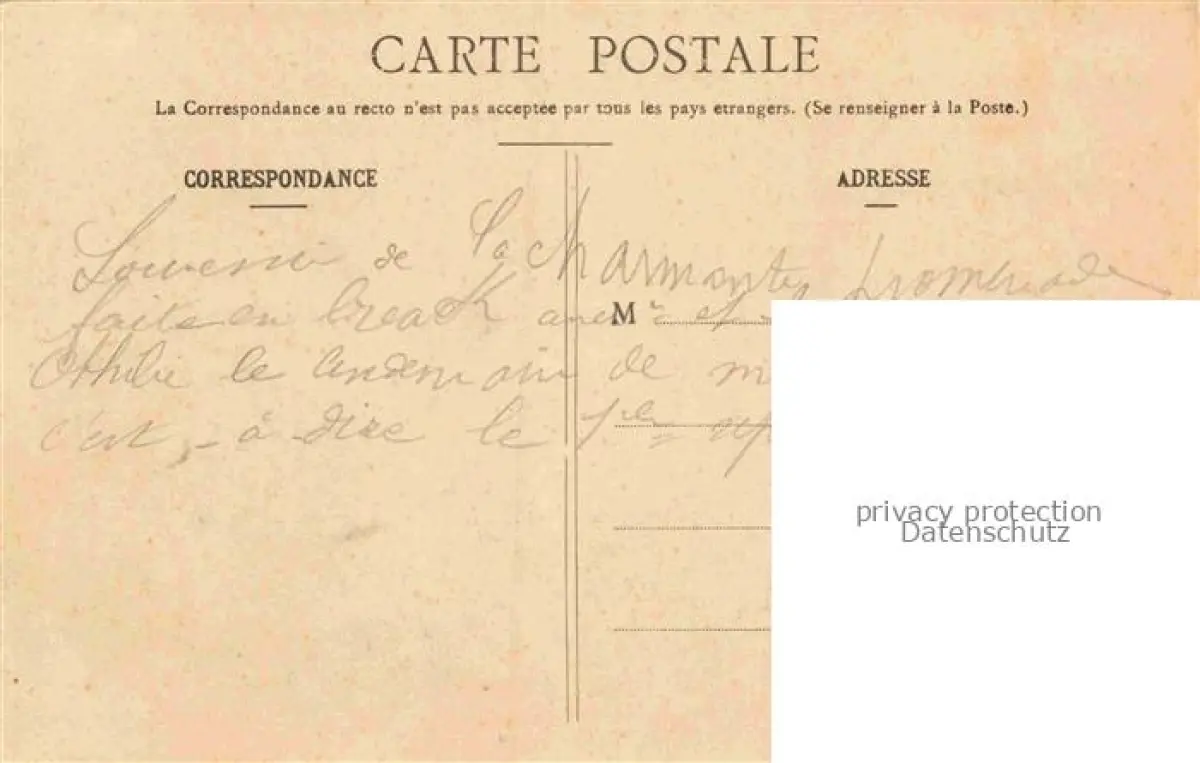 CARTE POSTALE
La Correspondance au recto n'est pas acceptée par tous les pays etrangers. (Se renseigner à la Poste.)
CORRESPONDANCE
ADRESSE
Souvenir de la charmante promenade
faite en break avec Mr et
M
Othilie le lendemain de
c'est-à-dire le
privacy protection
Datenschutz